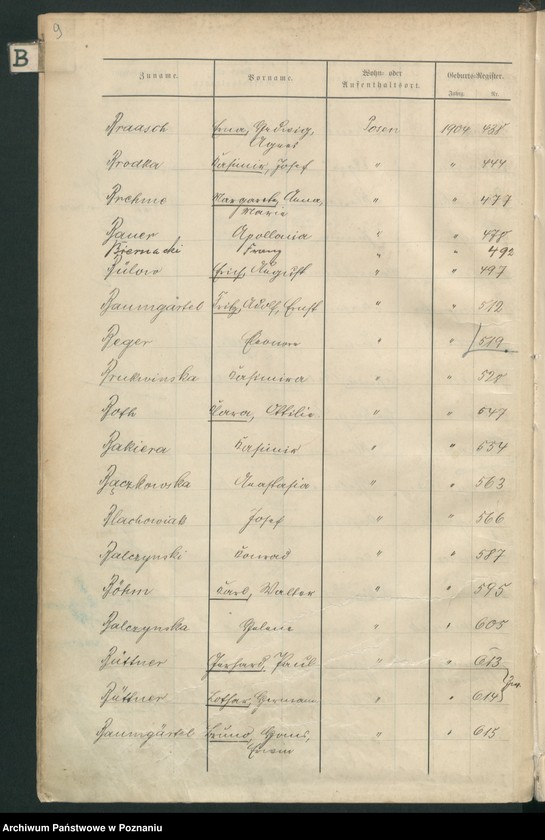 9
B
Zuname. Vorname. Wohn- oder Aufenthaltsort. Geburts-Register.
Jahrg. Nr.
Braasch Erna, Hedwig, Posen 1904 438
Agnes
Brodka Casimir, Josef " " 444
Brehme Margarete, Anna, " " 477
Marie
Bauer Apollonia " " 478
Biernacki Franz " " 492
Bülow Erich, August " " 497
Baumgärtel Fritz, Adolf, Ernst " " 512
Beger " " 519
Brukwinska Casimira " " 528
Both Clara, Ottilie " " 547
Bakiera Casimir " " 554
Bączkowska Anastasia " " 563
Blachowiak Josef " " 566
Balczynski Conrad " " 587
Böhm Carl, Walter " " 595
Balczynska Helene " " 605
Büttner Gerhard, Paul " " 613
Büttner Lothar, Hermann " " 614
Baumgärtel Bruno, Hans, " " 615
Erwin
Archiwum Państwowe w Poznaniu